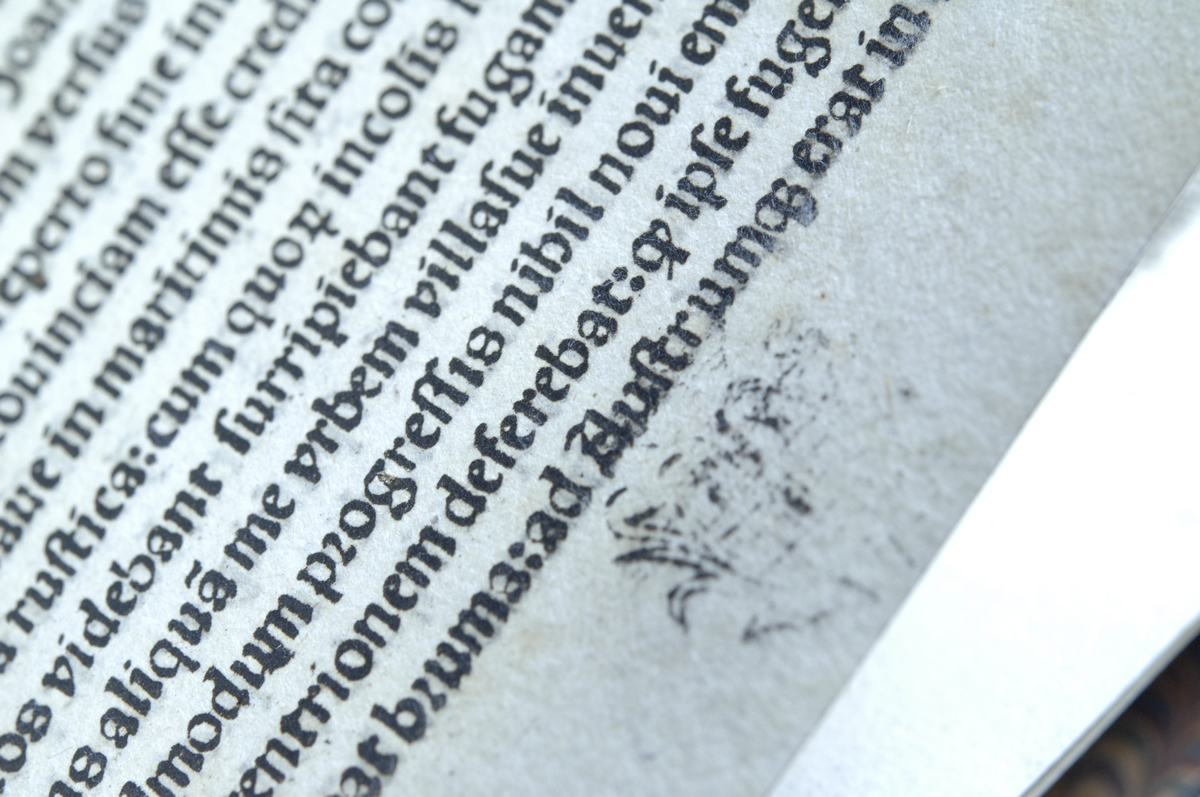 Joan
m verſus
eperto fine in
rouinciam eſſe credi
aue in maritimis ſita co
a ruſtica: cum quoꝝ incolis
os videbant ſurripiebant fugam
ns aliquã me vrbem villaſue inuen
modum progreſſis nihil noui em
entrionem deferebat: ꝙ ipſe fuger
bat bruma: ad Auſtrumqꝫ erat in